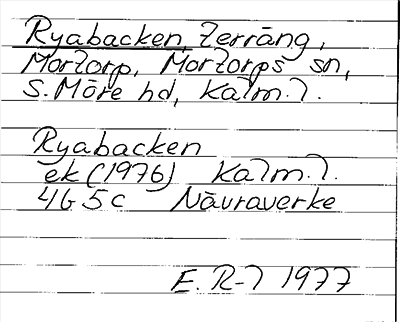 Ryabacken, terräng,
Mortorp, Mortorps sn,
S. Möre hd, Kalm. l.
Ryabacken
ek (1976) Kalm. l.
4G 5c Nävraverke
E. R-l 1977